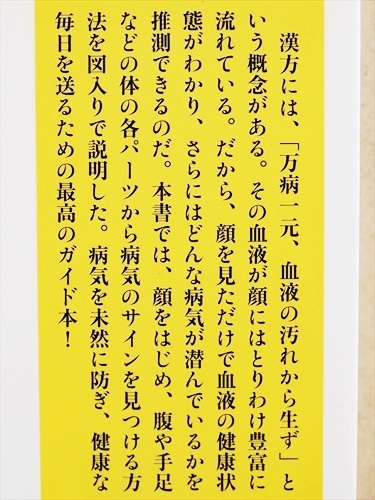 漢方には、「万病一元、血液の汚れから生ず」と
いう概念がある。その血液が顔にはとりわけ豊富に
流れている。だから、顔を見ただけで血液の健康状
態がわかり、さらにはどんな病気が潜んでいるかを
推測できるのだ。本書では、顔をはじめ、腹や手足
などの体の各パーツから病気のサインを見つける方
法を図入りで説明した。病気を未然に防ぎ、健康な
毎日を送るための最高のガイド本！